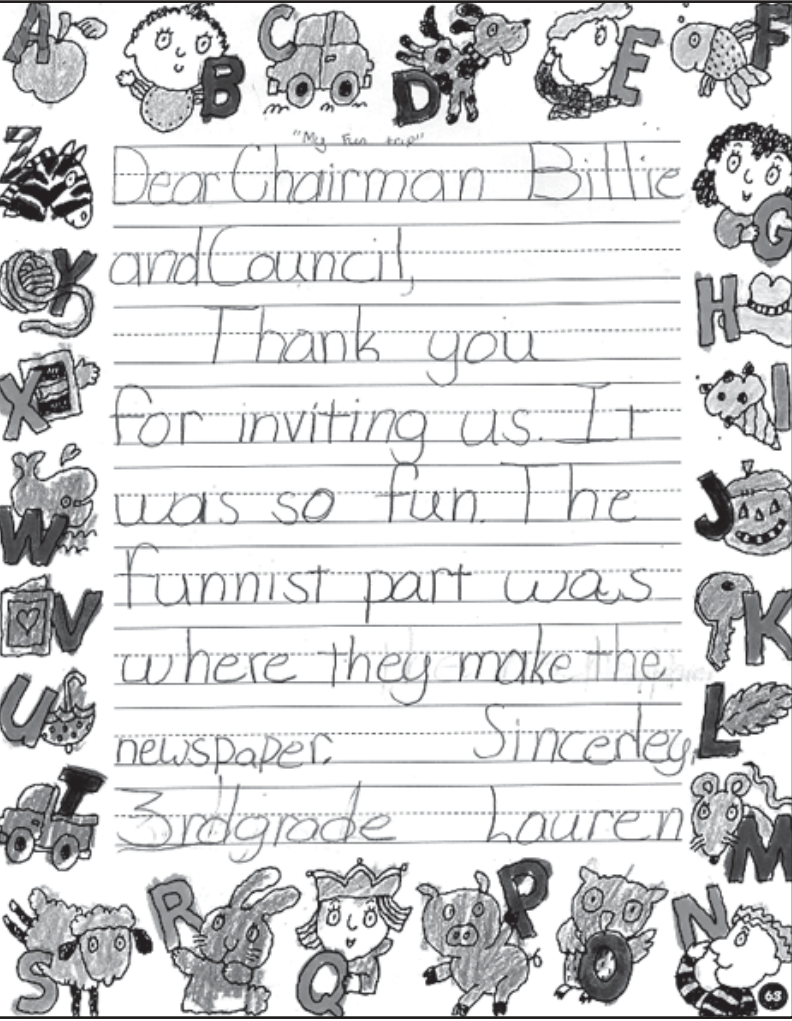 A
B
C
D
E
F
"My Fun trip"
Z
Dear Chairman Billie
G
and Council,
Y
H
Thank you
X
I
for inviting us. It
W
was so fun. The
J
funnist part was
V
K
where they make the
U
L
newspaper. Sincerley,
T
3rd grade Lauren
M
S
R
Q
P
O
N
63